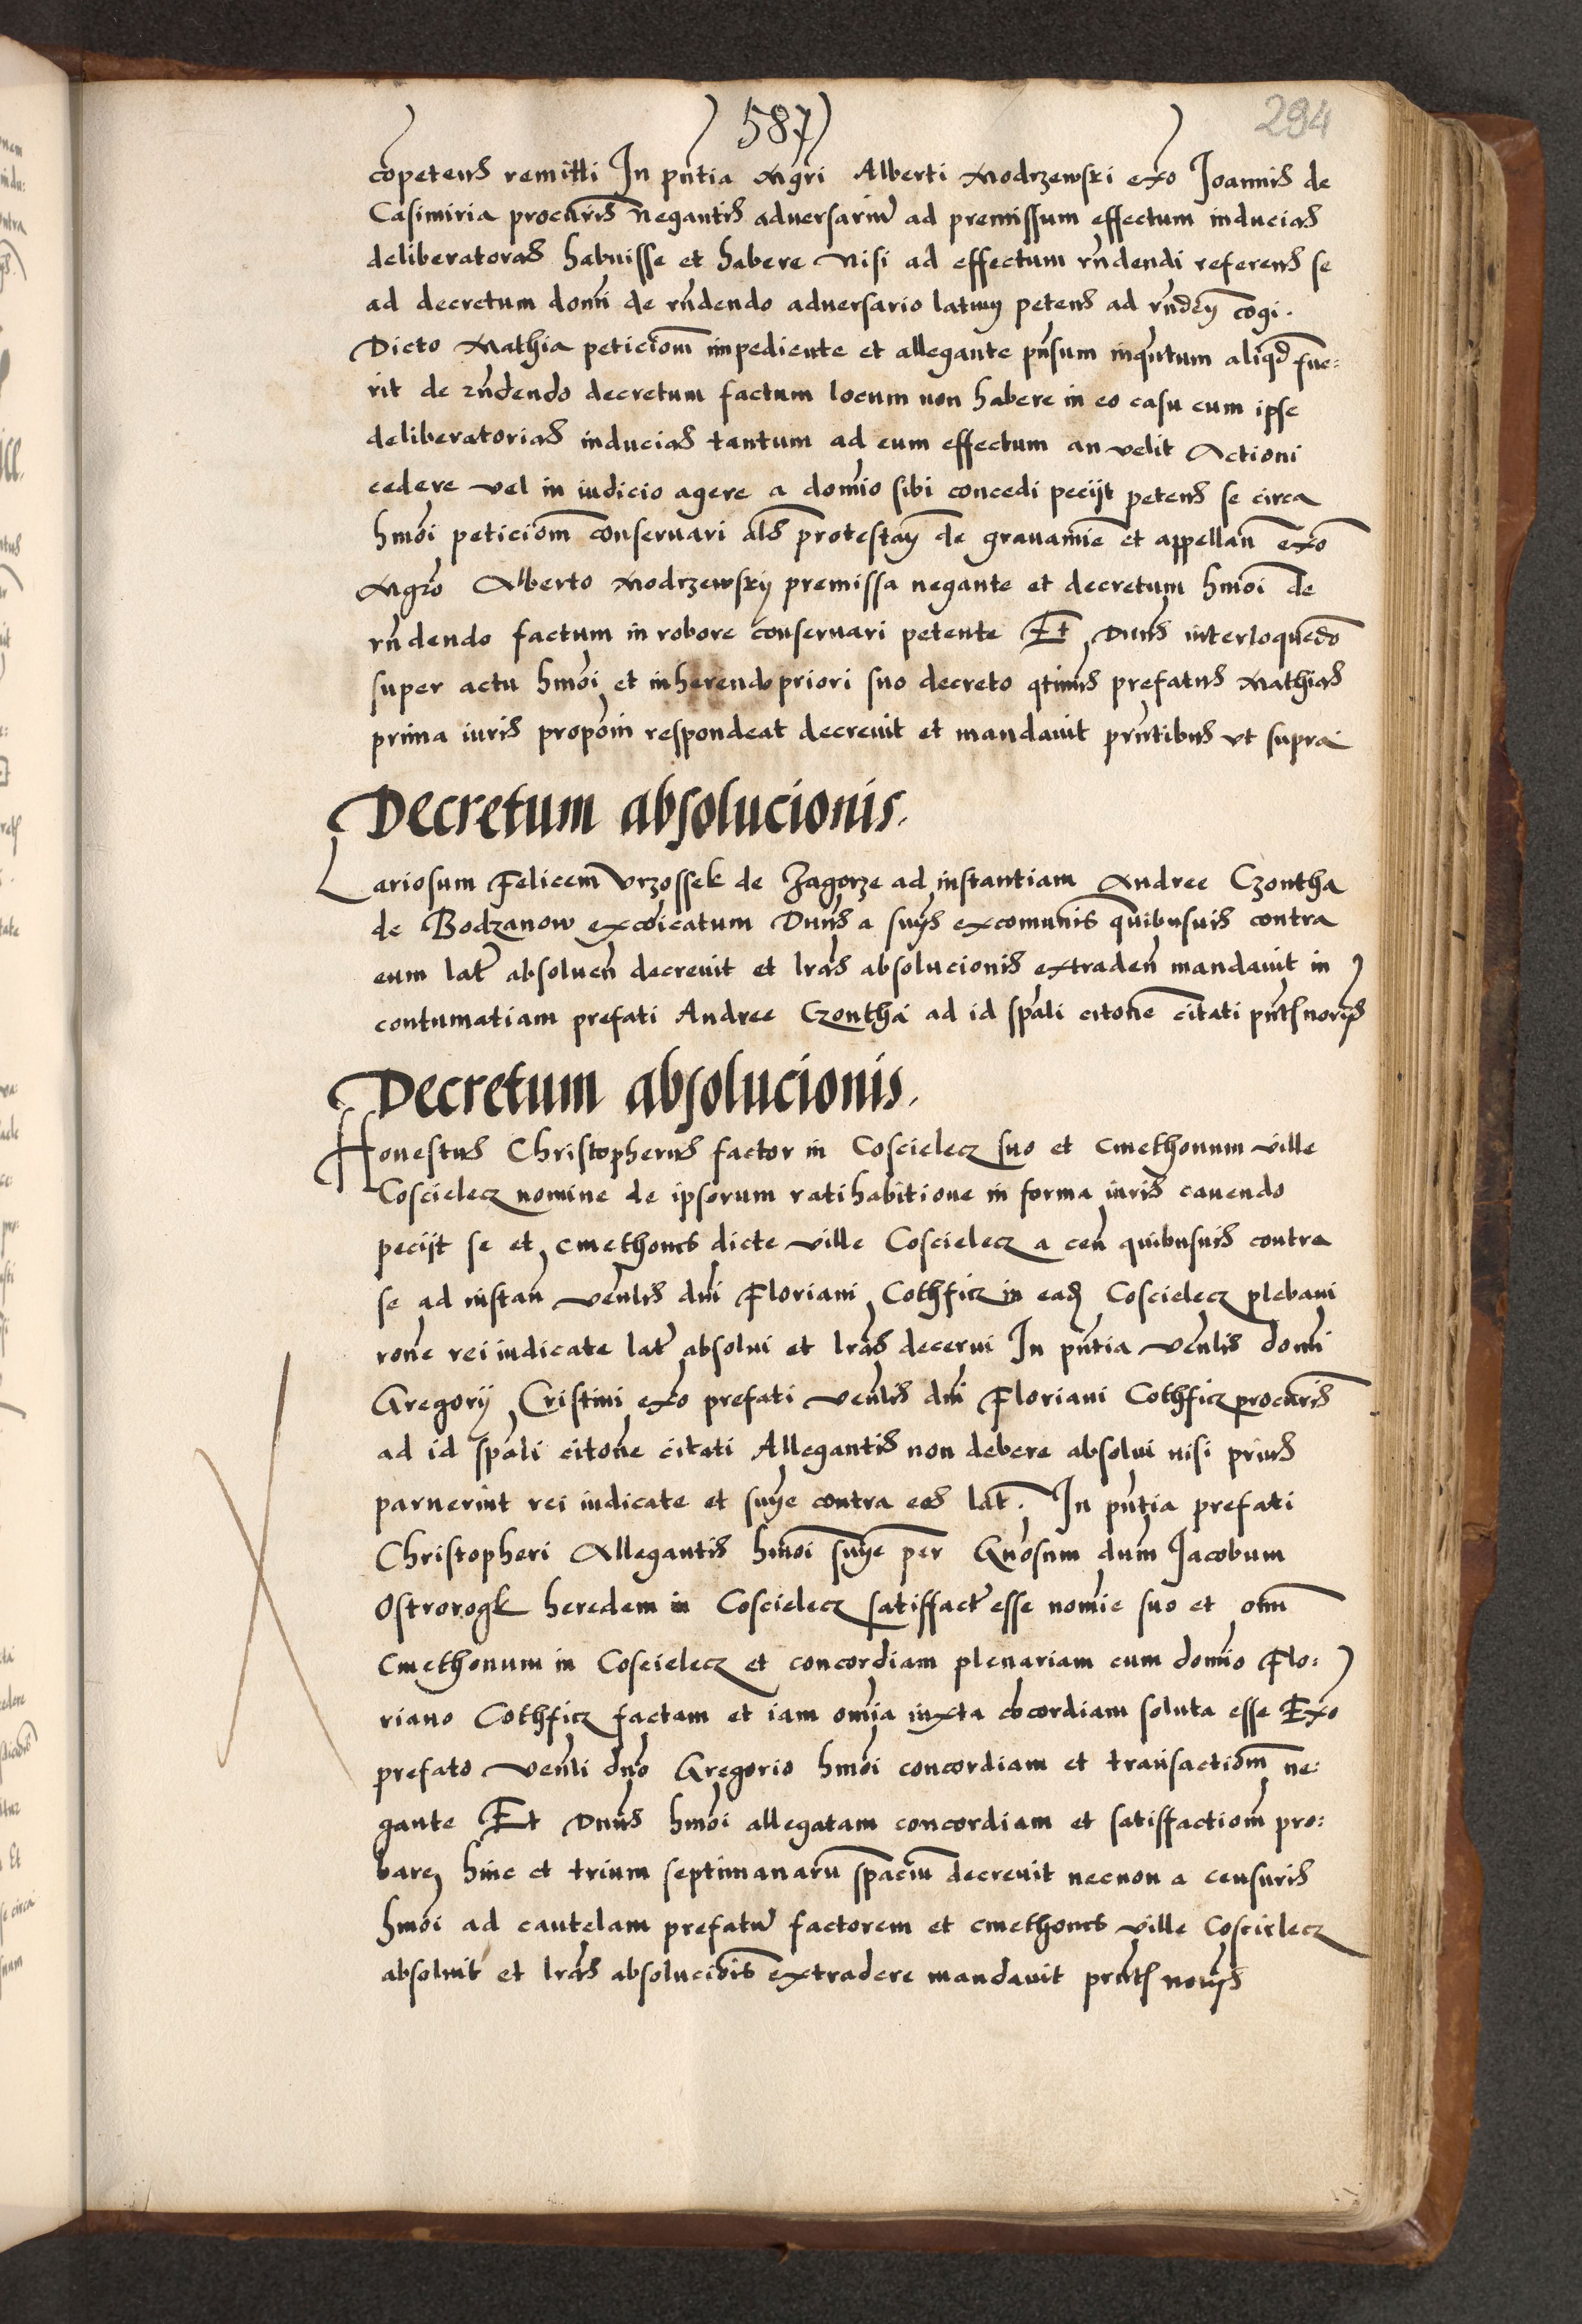 587
294
co͞petens remitti In pn̄tia Mgr̄i Alberti Modrzewski ex̄o Joannis de
Casimiria procur̄is negantis adversariu͞ ad premissum effectum inducias
deliberatoras habuisse et habere Nisi ad effectum rn̄dendi referens se
ad decretum dom̄i de rn̄dendo adversario latum petens ad rn̄den̄ cogi.
Dicto Mathia peticiom̄ impediente et allegante pn̄sum inqn̄tum aliqd̄ fue:
rit de rn̄dendo decretum factum locum non habere in eo casu cum ipse
deliberatorias inducias tantum ad eum effectum an velit Actioni
cedere vel in iudicio agere a domi͞o sibi concedi peciit petens se circa
hm̄oi peticiom̄ conservari als̄ protestan̄ de gravami͞e et appellan̄ ex̄o
Mgr̄o Alberto Modrzewskij premissa negante et decretum hm̄oi de
rn̄dendo factum in robore conservari petente Et Dn̄us interloquen̄do
super actu hm̄oi et inherendo priori suo decreto qtinus prefatus Mathias
prima iuris propo͞in respondeat decrevit et mandavit prn̄tibus ut supra
Decretum absolucionis.
Lariosum Felicem Vrzossek de Zagorze ad instantiam Andree Czontha
de Bodzanow exco͞icatum Dn̄us a suys excomun̄is quibusvis contra
eum lat̄ absolven̄ decrevit et lr̄as absolucionis extraden̄ mandavit in
contumatiam prefati Andree Czontha ad id spāli citōne citati pn̄t
Decretum absolucionis.
Honestus Christopherus factor in Coscielecz suo et cmethonum ville
Coscielecz nomine de ipsorum ratihabitione in forma iuris cavendo
peciit se et cmethones dicte ville Coscielecz a cen̄ quibusvis contra
se ad instan̄ ven̄lis dn̄i Floriani Cothficz in ead̄ Coscielecz plebani
rōne rei iudicate lat̄ absolvi et lr̄as decerni In pn̄tia ven̄lis dom̄i
Gregorij Cristini ex̄o prefati ven̄lis dn̄i Floriani Cothficz procur̄is
ad id spāli citōne citati Allegantis non debere absolvi nisi prius
paruerint rei iudicate et sn̄ye contra eos lat̄. In pn̄tia prefati
Christopheri Allegantis hm̄oi sn̄ye per Gn̄osum dn̄um Jacobum
Ostrorogk heredem in Coscielecz satiffact̄ esse nomi͞e suo et om̄
cmethonum in Coscielecz et concordiam plenariam cum domi͞o Flo:
riano Cothficz factam et iam om̄ia iuxta co͞cordiam soluta esse Ex̄o
prefato ven̄li dn̄o Gregorio hm̄oi concordiam et transactiom̄ ne:
gante Et Dn̄us hm̄oi allegatam concordiam et satiffactiom̄ pro:
bare hinc et trium septimanaru͞ spaciu͞ decrevit necnon a censuris
hm̄oi ad cautelam prefatu͞ factorem et cmethones ville Coscielecz
absolvit et lr̄as absoluciōis extradere mandavit prn̄t